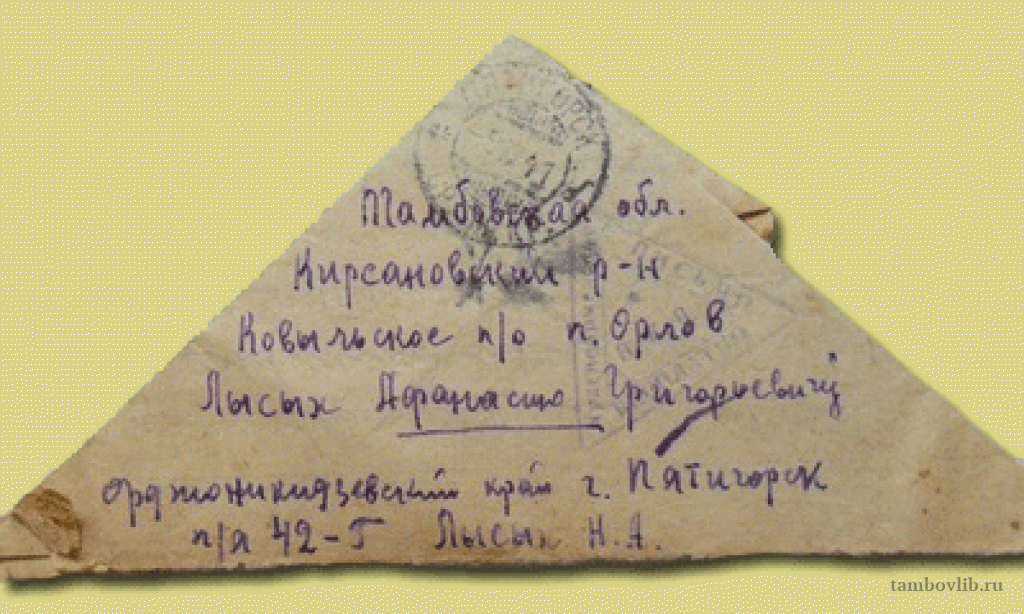 ПЯТИГОРСК
Тамбовская обл.
Кирсановский р-н
Ковыльское п/о п. Орлов
Лысых Афанасию Григорьевичу
Орджоникидзевский край г. Пятигорск
п/я 42-Г Лысых Н.А.
tambovlib.ru